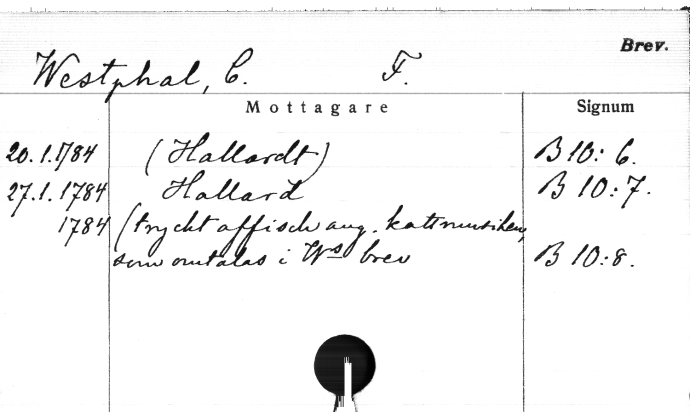 Brev.
Westphal, C. F.
Mottagare Signum
20.1.1784 (Hallardt) B 10:6.
27.1.1784 Hallard B 10:7.
1784 (tryckt affisch ang. kattmusiken,
som omtalas i Ws brev B 10:8.